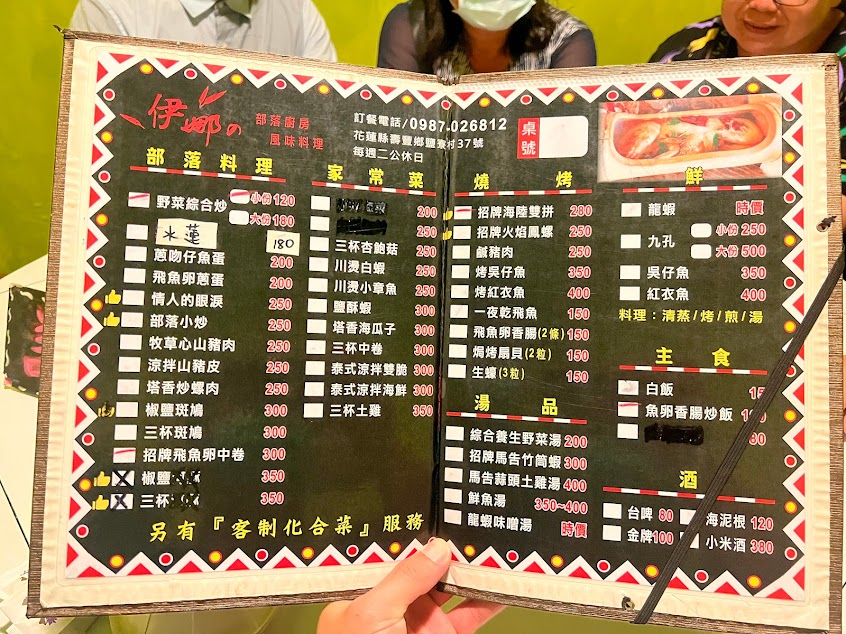 伊娜の
部落廚房
風味料理
訂餐電話/0987-026812
花蓮縣壽豐鄉鹽寮村37號
每週二公休日
桌號
部落料理
野菜綜合炒 小份 120
大份 180
水蓮 180
蔥吻仔魚蛋 200
飛魚卵蔥蛋 200
情人的眼淚 250
部落小炒 250
牧草心山豬肉 250
涼拌山豬皮 250
塔香炒螺肉 250
椒鹽斑鳩 300
三杯斑鳩 300
招牌飛魚卵中卷 300
椒鹽 350
三杯 350
家常菜
200
250
三杯杏鮑菇 250
川燙白蝦 250
川燙小章魚 250
鹽酥蝦 300
塔香海瓜子 300
三杯中卷 300
泰式涼拌雙脆 300
泰式涼拌海鮮 300
三杯土雞 350
另有『客制化合菜』服務
燒烤
招牌海陸雙拼 280
招牌火焰鳳螺 250
鹹豬肉 250
烤吳仔魚 350
烤紅衣魚 400
一夜乾飛魚 150
飛魚卵香腸(2條) 150
焗烤扇貝(2粒) 150
生蠔(3粒) 150
湯品
綜合養生野菜湯 200
招牌馬告竹筒蝦 300
馬告蒜頭土雞湯 400
鮮魚湯 350~400
龍蝦味噌湯 時價
海鮮
龍蝦 時價
九孔 小份 250
大份 500
吳仔魚 350
紅衣魚 400
料理：清蒸/烤/煎/湯
主食
白飯 15
魚卵香腸炒飯
80
酒
台啤 80 海泥根 120
金牌 100 小米酒 380